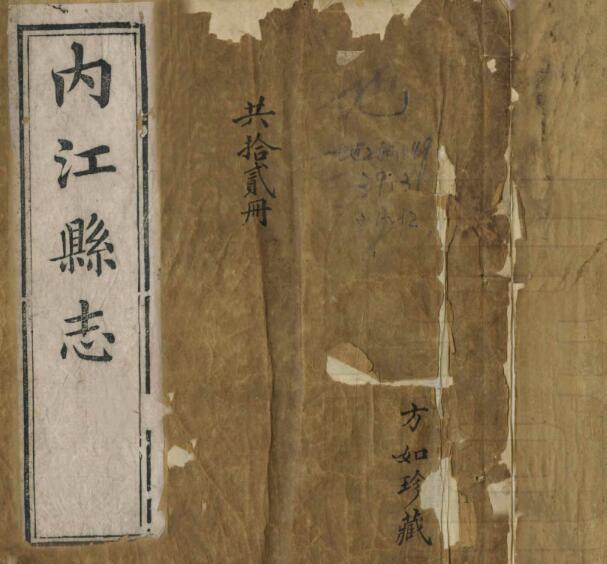 内江縣志
共拾貳冊
方如珍藏